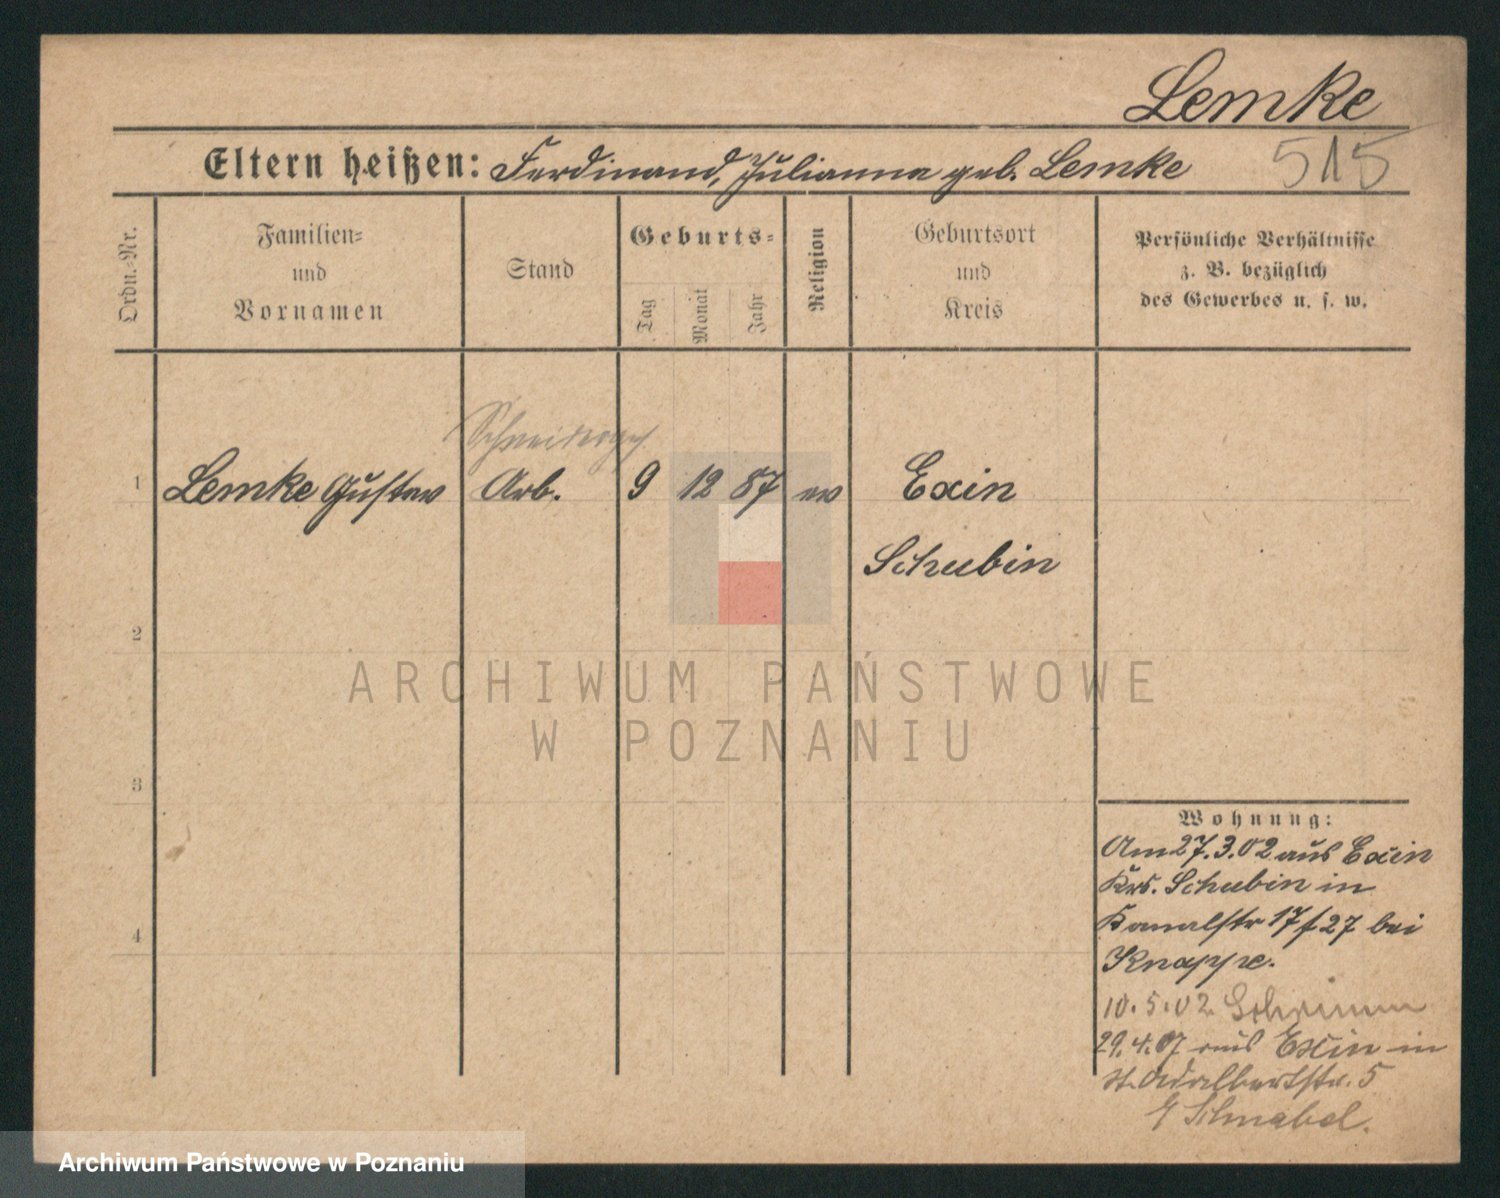 Lemke
Eltern heißen: Ferdinand, Julianna geb. Lemke 515
Ordn.=Nr.
Familien=
und
Vornamen
Stand
Geburts=
Tag
Monat
Jahr
Religion
Geburtsort
und
Kreis
Persönliche Verhältnisse
z. B. bezüglich
des Gewerbes u. s. w.
Schneiderges
1 Lemke Gustav Arb. 9 12 87 ev Exin
Schubin
2
3
4
Wohnung:
Am 27.3.02 aus Exin
Krs. Schubin in
Kanalstr 17 f 27 bei
Knappe.
10.5.02 Schrimm
29.4.07 aus Exin in
St. Adalbertstr. 5
Schnabel.
ARCHIWUM PAŃSTWOWE
W POZNANIU
Archiwum Państwowe w Poznaniu